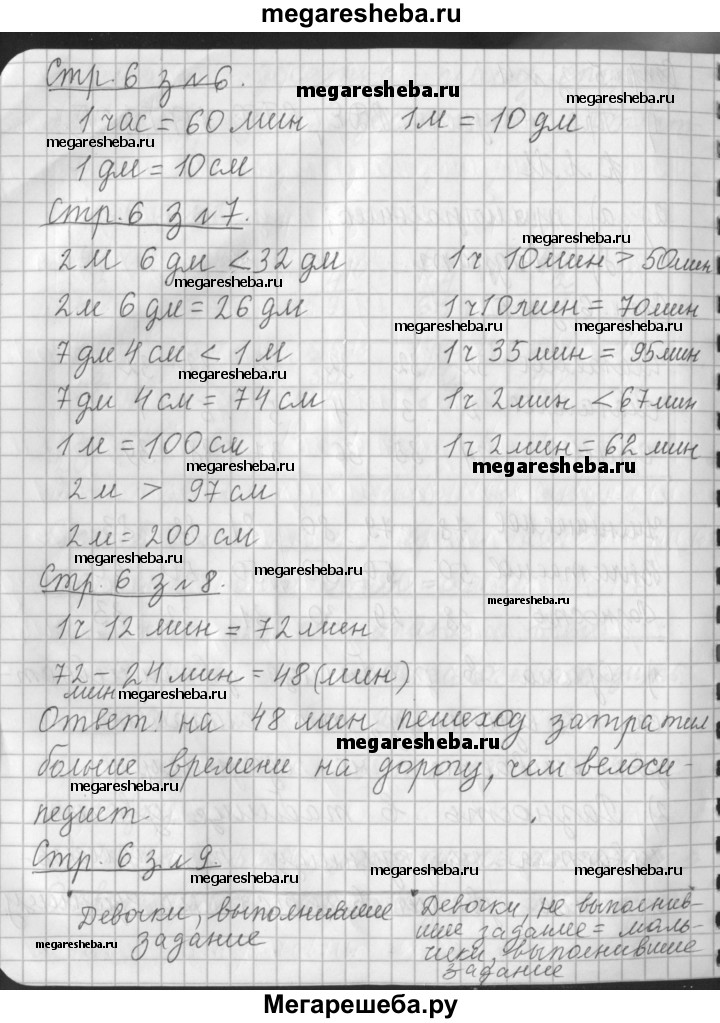 megaresheba.ru
Стр. 6 з №6.
megaresheba.ru
megaresheba.ru
1 час = 60 мин 1 м = 10 дм
megaresheba.ru
1 дм = 10 см
Стр. 6 з №7.
megaresheba.ru
2 м 6 дм < 32 дм 1 ч 10 мин > 50 мин
megaresheba.ru
2 м 6 дм = 26 дм 1 ч 10 мин = 70 мин
megaresheba.ru megaresheba.ru
7 дм 4 см < 1 м 1 ч 35 мин = 95 мин
megaresheba.ru
7 дм 4 см = 74 см 1 ч 2 мин < 67 мин
1 м = 100 см 1 ч 2 мин = 62 мин
megaresheba.ru megaresheba.ru
2 м > 97 см
2 м = 200 см
megaresheba.ru megaresheba.ru
Стр. 6 з №8.
megaresheba.ru
1 ч 12 мин = 72 мин
72 - 24 мин = 48 (мин)
мин megaresheba.ru
Ответ: на 48 мин пешеход затратил
megaresheba.ru
больше времени на дорогу, чем велоси-
megaresheba.ru
педист.
Стр. 6 з №9.
megaresheba.ru megaresheba.ru megaresheba.ru
Девочки, выполнившие
задание
megaresheba.ru
Девочки, не выполнив-
шие задание = маль-
чики, выполнившие
задание
megaresheba.ru
Мегарешеба.ру